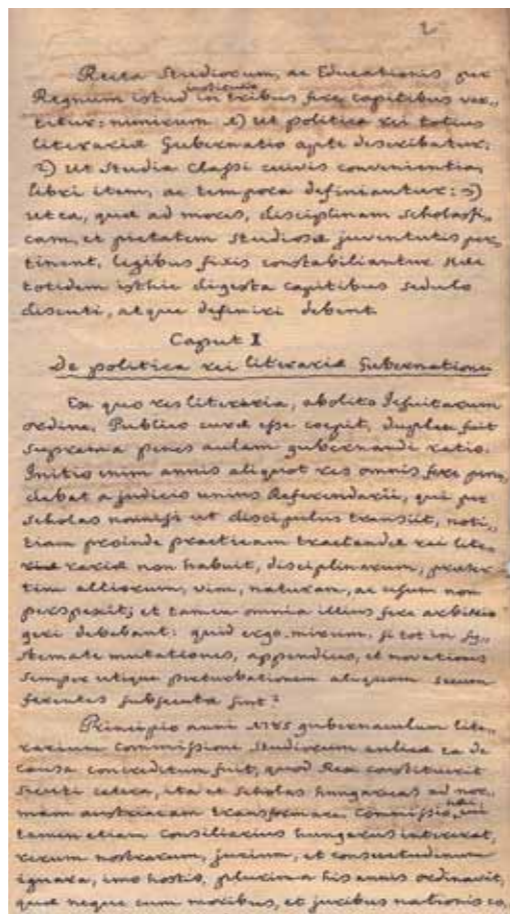 2
Recta Studiorum, ac Educationis per
institutio
Regnum istud in tribus fere capitibus ver„
titur: nimirum 1) Ut politica rei totius
literariæ Gubernatio apte describatur:
2) Ut Studia Classi cuivis convenientia,
libri item, ac tempora definiantur: 3)
ut ea, quæ ad mores, disciplinam scholasti„
cam, et pietatem studiosæ juventutis per„
tinent, legibus fixis constabiliantur. Hæc
totidem isthic digesta capitibus sedulo
discuti, atque definiri debent.
Caput I
De politica rei literariæ Gubernatione
Ex quo res literaria, abolito Jesuitarum
ordine, Publico curæ esse coepit, duplex fuit
suprema penes aulam gubernandi ratio.
Initio enim annis aliquot res omnis fere pen„
debat a judicio unius Referendarii, qui per
scholas nonnisi ut discipulus transiit, noti„
tiam proinde practicam tractandæ rei lite„
rariæ non habuit, disciplinarum, præser„
tim altiorum, vim, naturam, ac usum non
perspexit; et tamen omnia illius fere arbitrio
geri debebant: quid ergo mirum, si tot in sy„
stemate mutationes, appendices, et novationes
semper utique perturbationem aliquam secum
ferentes subsecutæ sint?
Principio anni 1785 gubernaculum lite„
rarium Commissioni Studiorum aulicæ ea de
causa concreditum fuit, quod Rex constituerit
sicuti cetera, ita et scholas hungaricas ad nor„
mam austriacam transformare. Commissio, cui
tamen etiam Consiliarius hungarus intererat,
rerum nostrarum, jurium, et consuetudinum
ignara, imo hostis, plurima his annis ordinavit,
quæ neque cum moribus, et juribus nationis co„